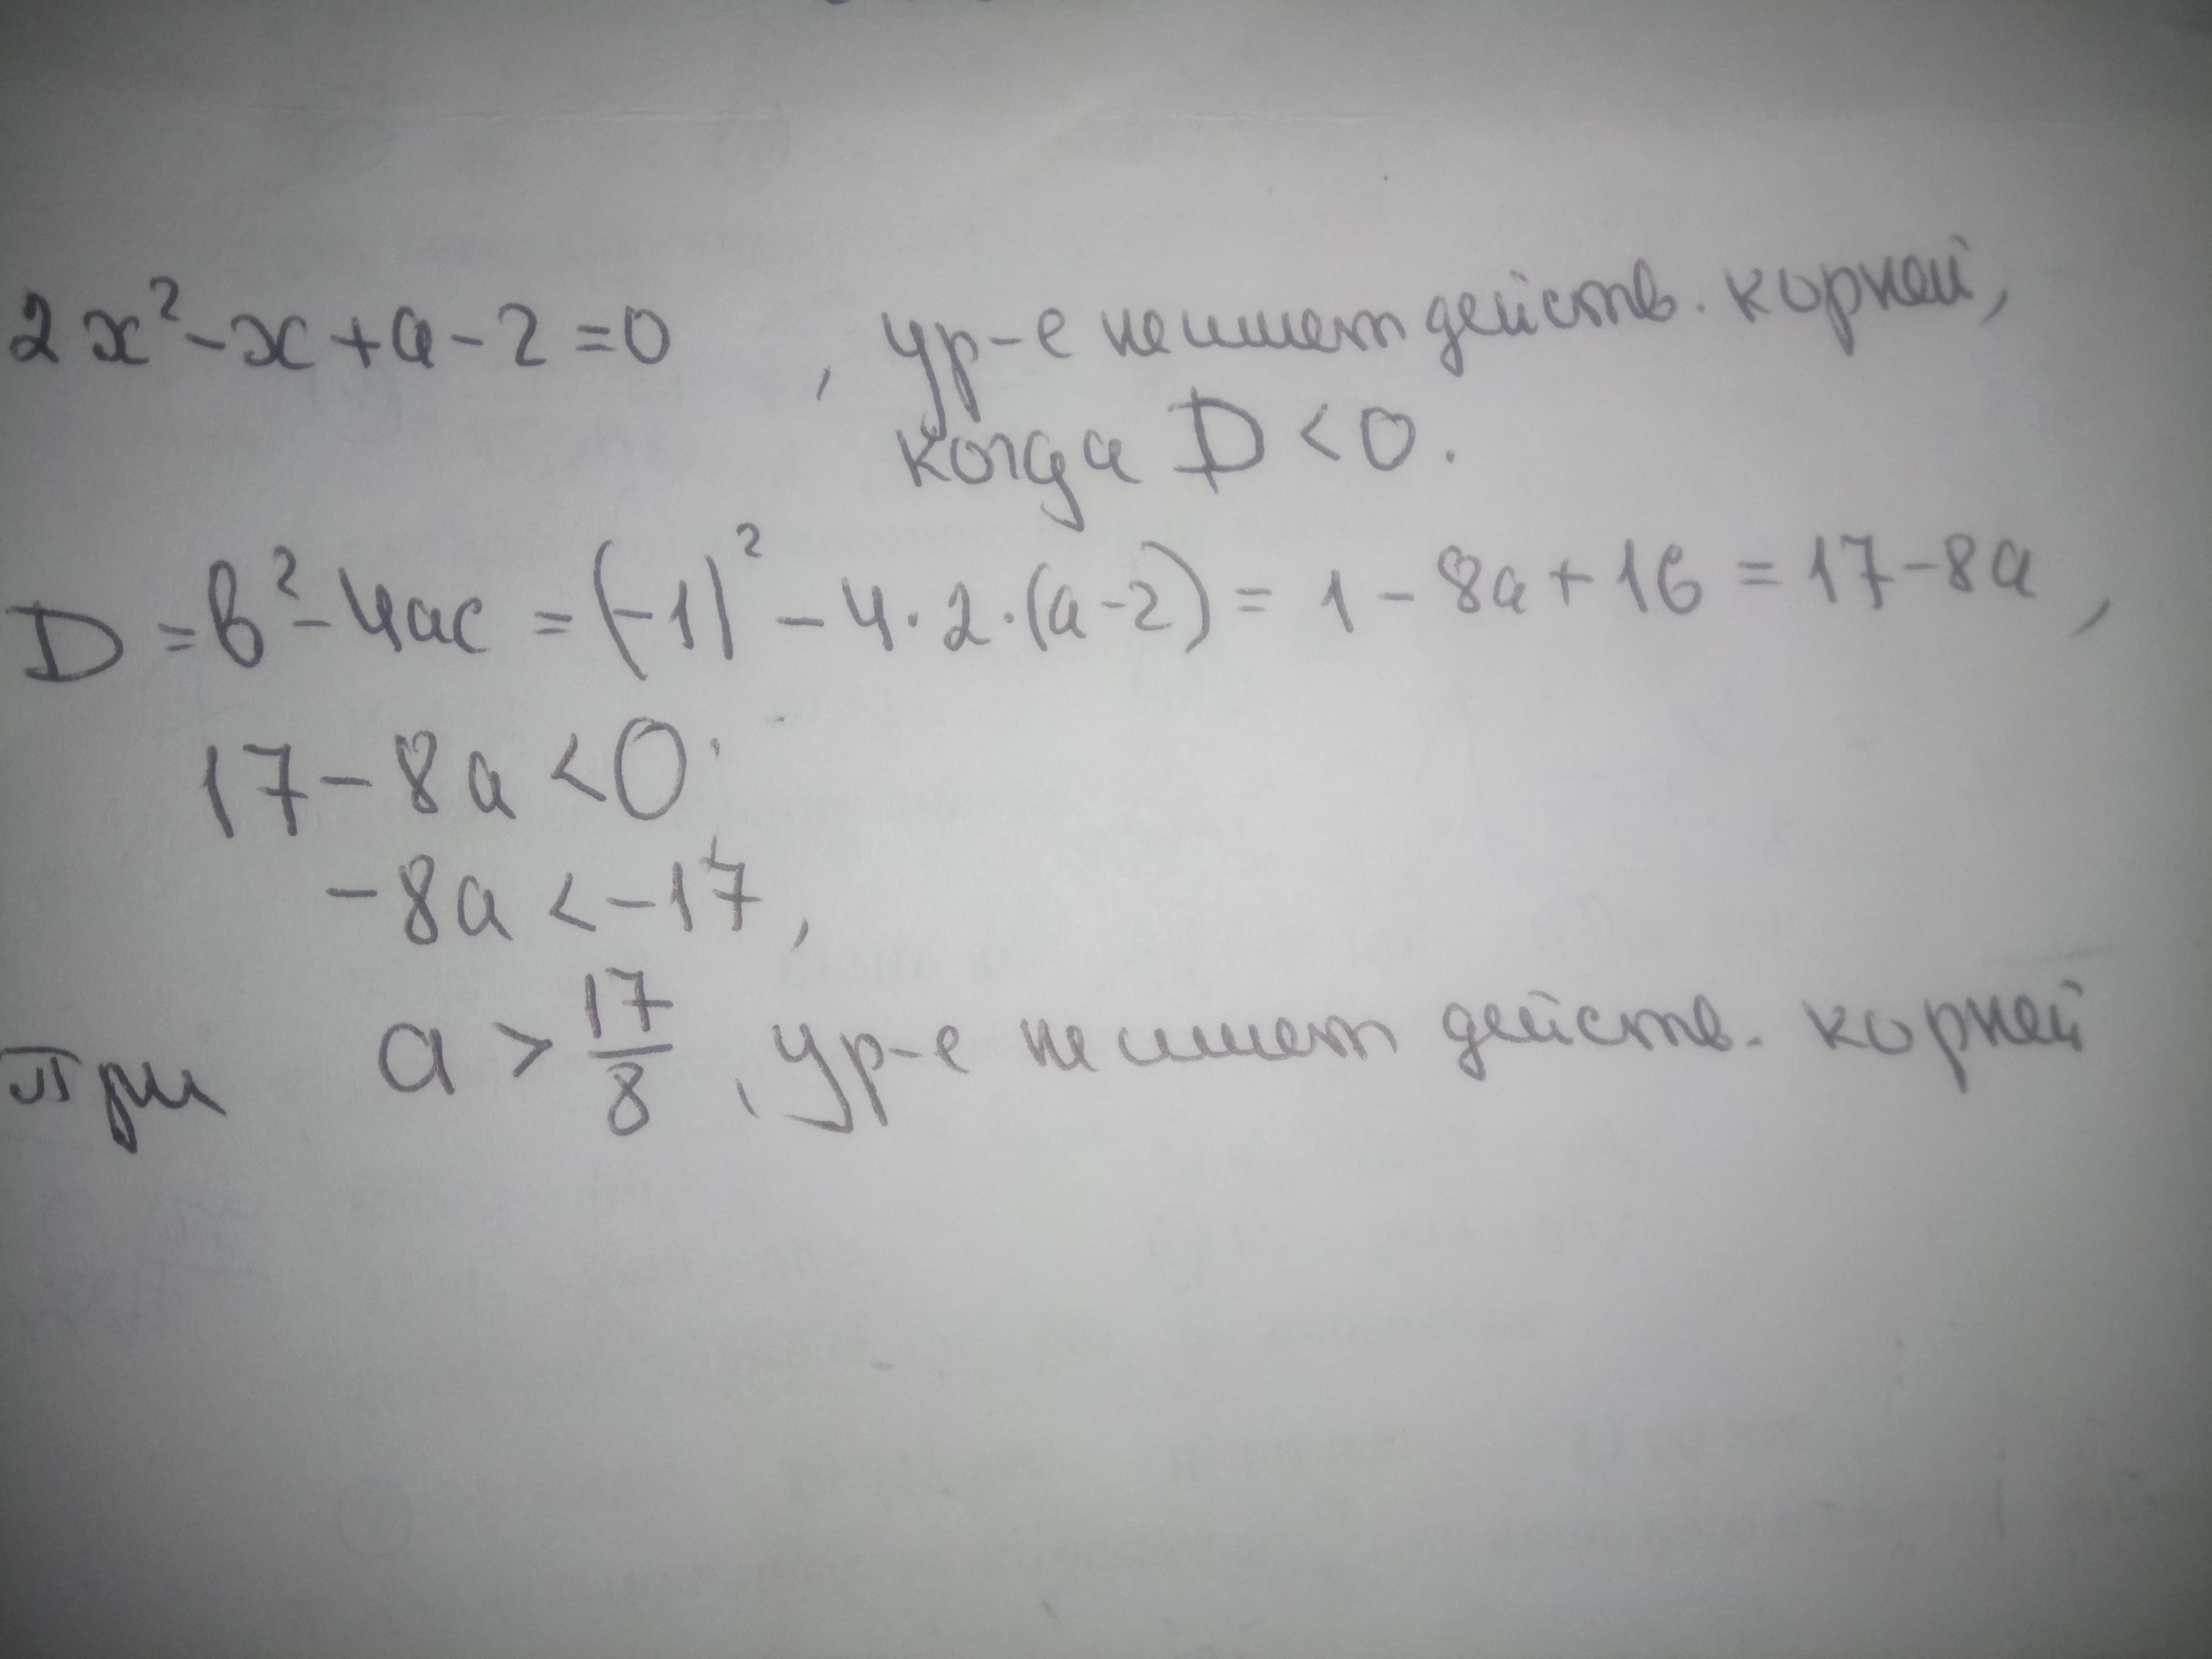 2x² - x + a - 2 = 0 , ур-е не имеет действ. корней,
когда D < 0.
D = в² - 4ac = (-1)² - 4·2·(a-2) = 1 - 8a + 16 = 17 - 8a ,
17 - 8a < 0
-8a < -17 ,
При a > 17/8 , ур-е не имеет действ. корней